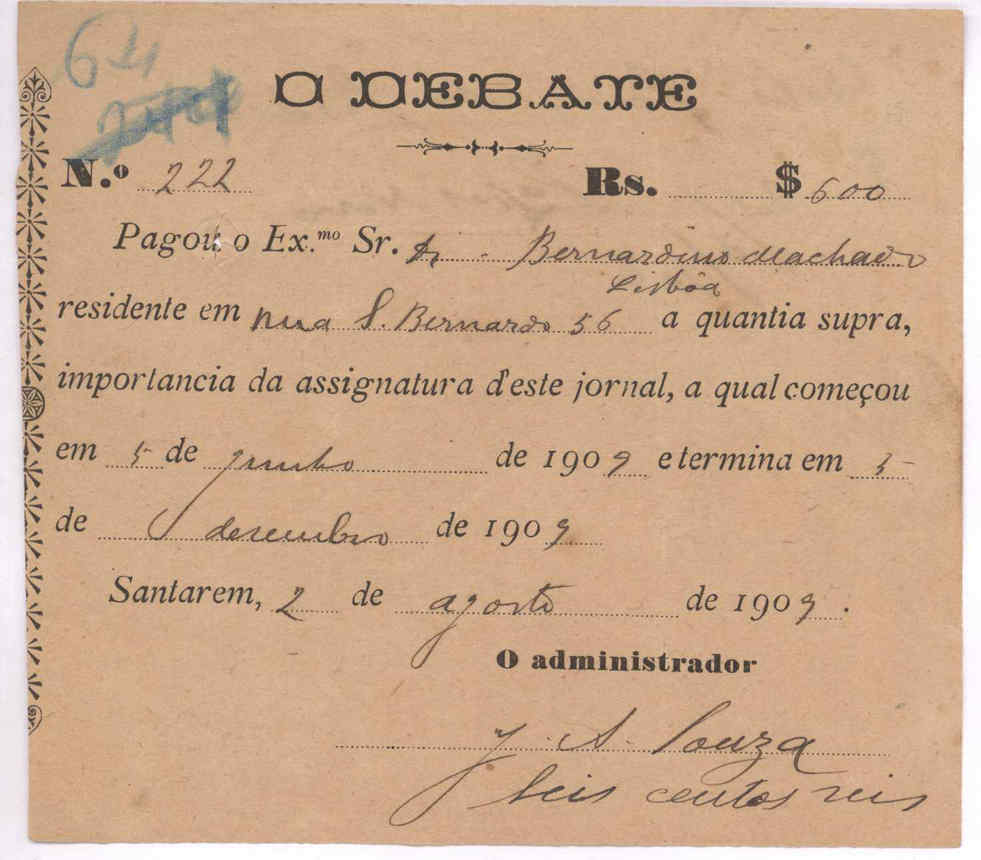 64
O DEBATE
N.º 222 Rs. $ 600
Pagou o Ex.mo Sr. Dr. Bernardino Machado
Lisbôa
residente em Rua S. Bernardo 56 a quantia supra,
importancia da assignatura d'este jornal, a qual começou
em 5 de junho de 1909 e termina em 5
de desembro de 1909
Santarem, 2 de agosto de 1909.
O administrador
J. A. Souza
Seis centos reis